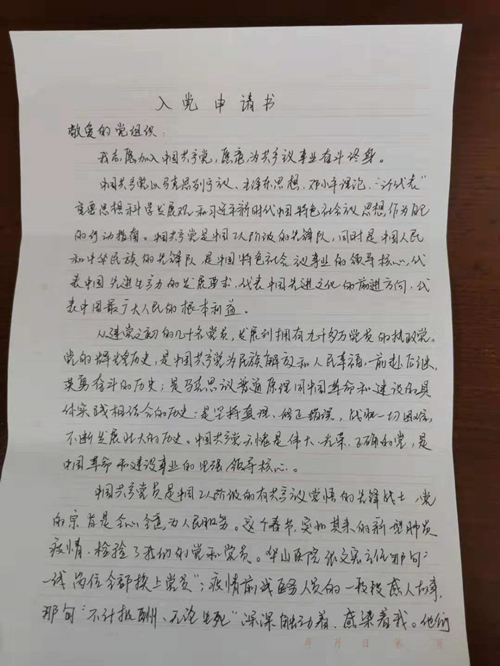 入党申请书
敬爱的党组织：
我志愿加入中国共产党，愿意为共产主义事业奋斗终身。
中国共产党以马克思列宁主义、毛泽东思想、邓小平理论、“三个代表”
重要思想、科学发展观和习近平新时代中国特色社会主义思想作为自己
的行动指南。中国共产党是中国工人阶级的先锋队，同时是中国人民
和中华民族的先锋队，是中国特色社会主义事业的领导核心，代
表中国先进生产力的发展要求，代表中国先进文化的前进方向，代
表中国最广大人民的根本利益。
从建党之初的几十名党员，发展到拥有九千多万党员的执政党。
党的辉煌历史，是中国共产党为民族解放和人民幸福，前赴后继，
英勇奋斗的历史；是马克思主义普遍原理同中国革命和建设的具
体实践相结合的历史；是坚持真理，修正错误，战胜一切困难，
不断发展壮大的历史。中国共产党无愧是伟大、光荣、正确的党，是
中国革命和建设事业的坚强领导核心。
中国共产党员是中国工人阶级的有共产主义觉悟的先锋战士，党
的宗旨是全心全意为人民服务。这个春节，突如其来的新型肺炎
疫情，检验了我们的党和党员。华山医院张文宏主任那句“
一线岗位全部换上党员”；疫情前线医务人员的一桩桩感人故事，
那句“不计报酬、无论生死”深深触动着、感染着我。他们
年 月 日 第 页